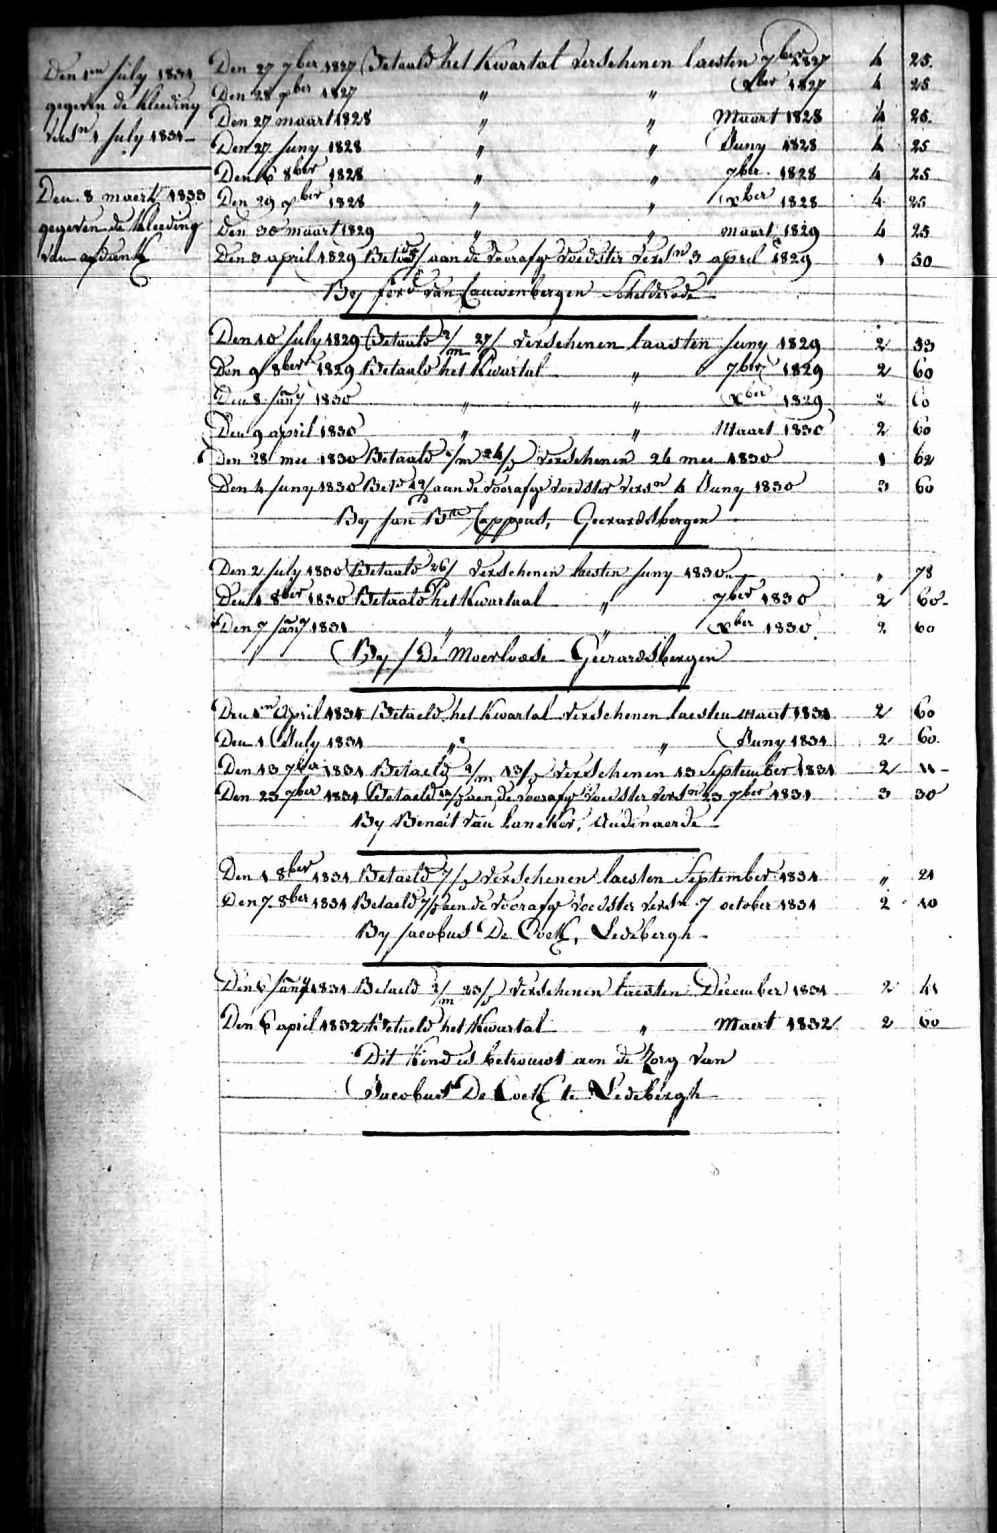 Den 1en July 1831
gegeven de kleeding
versn 1 July 1831 -
Den 8 maert 1833
gegeven de kleeding
van afdank
Den 27 7ber 1827 Betaald het Kwartal verschenen laesten 7ber 1827 4 25
Den 28 xber 1827 " " xber 1827 4 25
Den 27 maart 1828 " " Maart 1828 4 25
Den 27 Juny 1828 " " Juny 1828 4 25
Den 6 8ber 1828 " " 7ber 1828 4 25
Den 29 xber 1828 " " xber 1828 4 25
Den 30 maart 1829 " " maart 1829 4 25
Den 3 april 1829 Betd aan de voorafge voedster versn 3 april 1829 1 50
By Ferd van Cauwenbergen Schelderode
Den 10 July 1829 Betaald 2/m 27/ verschenen laasten Juny 1829 2 33
Den 9 8ber 1829 Betaald het Kwartal " 7ber 1829 2 60
Den 8 Jany 1830 " " xber 1829 2 60
Den 9 april 1830 " " Maart 1830 2 60
Den 28 mei 1830 Betaald 1/m 24/ verschenen 24 mei 1830 1 62
Den 4 Juny 1830 Betd aan de voorafge voedster versn 4 Juny 1830 3 60
By Jan Bte Cappens, Geerardsbergen
Den 2 July 1830 Betaald 26/ verschenen laesten Juny 1830 " 78
Den 1 8ber 1830 Betaald het Kwartaal " 7ber 1830 2 60
Den 7 Jany 1831 " " xber 1830 2 60
By J De Moerloose Geerardsbergen
Den 1en April 1831 Betaeld het Kwartal verschenen laesten maert 1831 2 60
Den 1 July 1831 " " Juny 1831 2 60
Den 13 7ber 1831 Betaeld 2/m 13/ verschenen 13 September 1831 2 "
Den 23 7ber 1831 Betaeld aen de voorafge voedster versn 23 7ber 1831 3 30
By Benoit van Laneker, Audinaerde
Den 1 8ber 1831 Betaeld 7/ verschenen laesten September 1831 " 21
Den 7 8ber 1831 Betaeld 7/ aen de voorafge voedster versn 7 october 1831 2 10
By Jacobus De Cock, Ledebergh
Den 6 Jany 1831 Betaeld 2/m 23/ verschenen laesten December 1831 2 41
Den 6 april 1832 Betaeld het Kwartal " Maert 1832 2 60
Dit Kind is betrouwt aen de Zorg van
Jacobus De Cock te Ledebergh